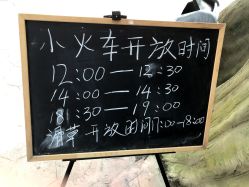 小火车开放时间
12:00—12:30
14:00—14:30
18:30—19:00
开放时间17:00—18:00